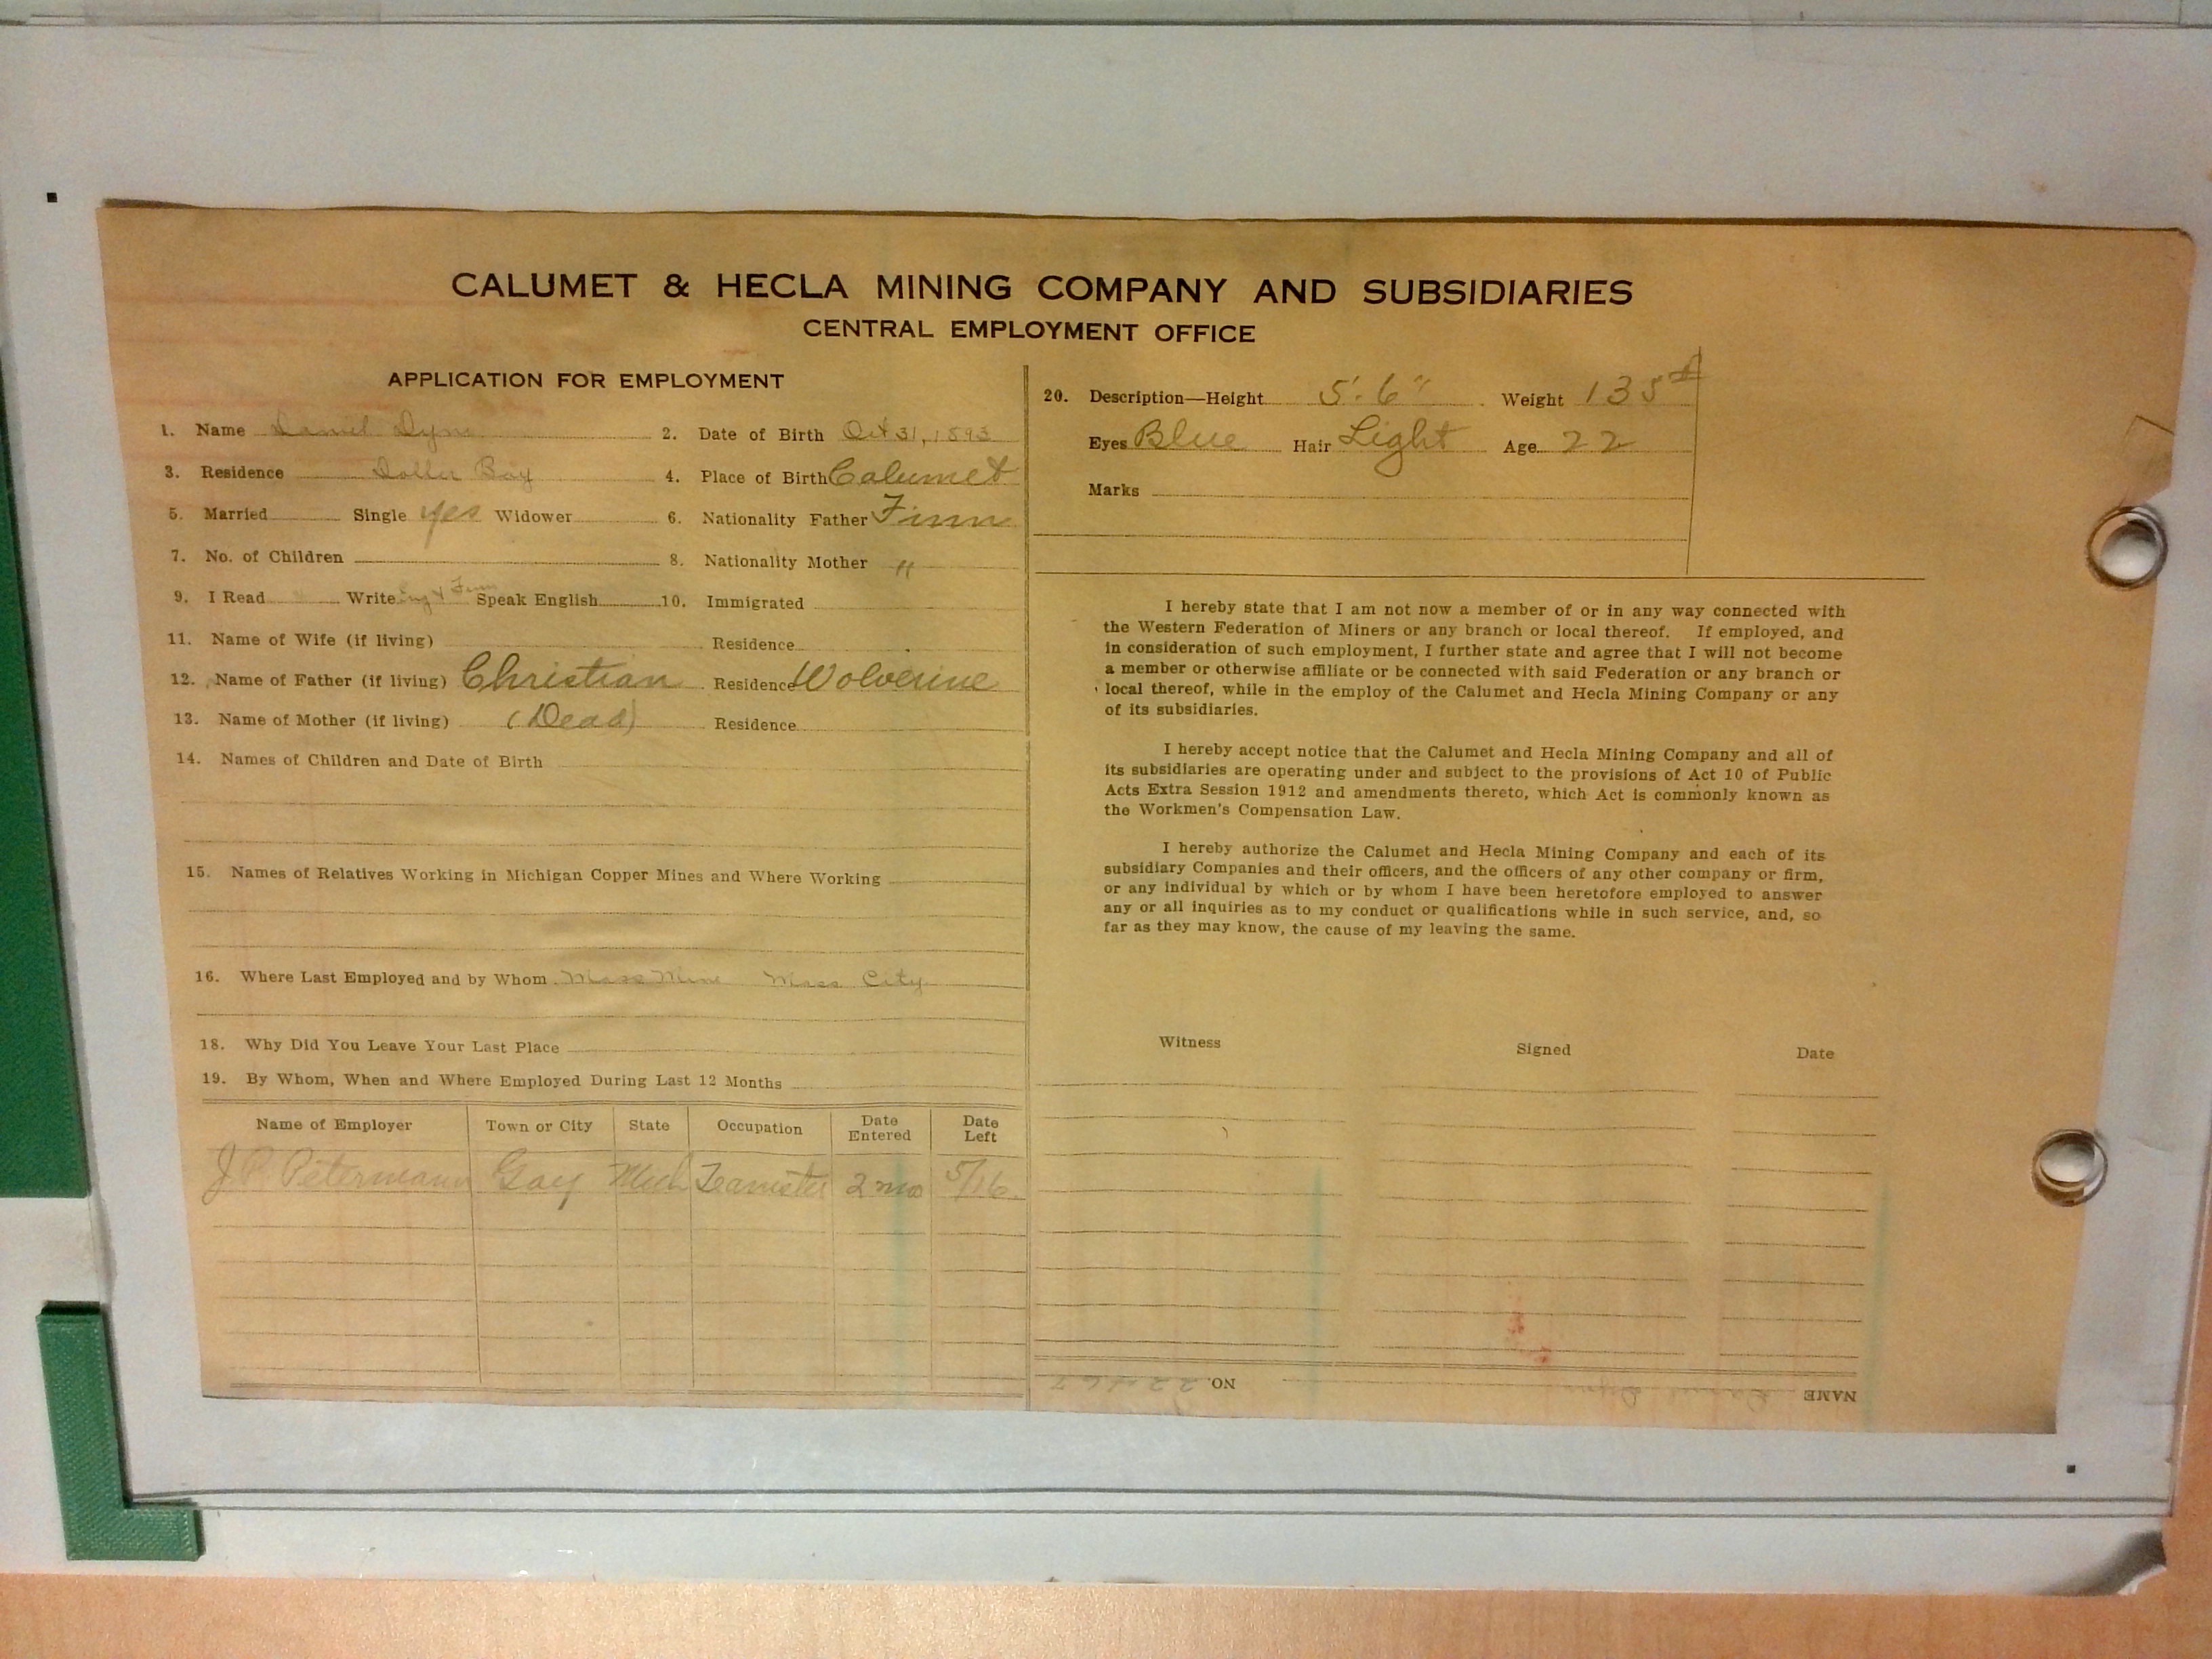 CALUMET & HECLA MINING COMPANY AND SUBSIDIARIES
CENTRAL EMPLOYMENT OFFICE
APPLICATION FOR EMPLOYMENT
1. Name Daniel 2. Date of Birth Oct 31, 1893
3. Residence Doller Bay 4. Place of Birth Calumet
5. Married Single Yes Widower 6. Nationality Father Finn
7. No. of Children 8. Nationality Mother "
9. I Read Write Eng & Finn Speak English 10. Immigrated
11. Name of Wife (if living) Residence
12. Name of Father (if living) Christian Residence Wolverine
13. Name of Mother (if living) (Dead) Residence
14. Names of Children and Date of Birth
15. Names of Relatives Working in Michigan Copper Mines and Where Working
16. Where Last Employed and by Whom Mass Mine Mass City
18. Why Did You Leave Your Last Place
19. By Whom, When and Where Employed During Last 12 Months
Name of Employer Town or City State Occupation Date Entered Date Left
J. P. Petermann Gay Mich Teamster 2 mo 5/16
20. Description—Height 5'-6" Weight 135#
Eyes Blue Hair Light Age 22
Marks
I hereby state that I am not now a member of or in any way connected with
the Western Federation of Miners or any branch or local thereof. If employed, and
in consideration of such employment, I further state and agree that I will not become
a member or otherwise affiliate or be connected with said Federation or any branch or
local thereof, while in the employ of the Calumet and Hecla Mining Company or any
of its subsidiaries.
I hereby accept notice that the Calumet and Hecla Mining Company and all of
its subsidiaries are operating under and subject to the provisions of Act 10 of Public
Acts Extra Session 1912 and amendments thereto, which Act is commonly known as
the Workmen's Compensation Law.
I hereby authorize the Calumet and Hecla Mining Company and each of its
subsidiary Companies and their officers, and the officers of any other company or firm,
or any individual by which or by whom I have been heretofore employed to answer
any or all inquiries as to my conduct or qualifications while in such service, and, so
far as they may know, the cause of my leaving the same.
Witness Signed Date
NAME Daniel NO.